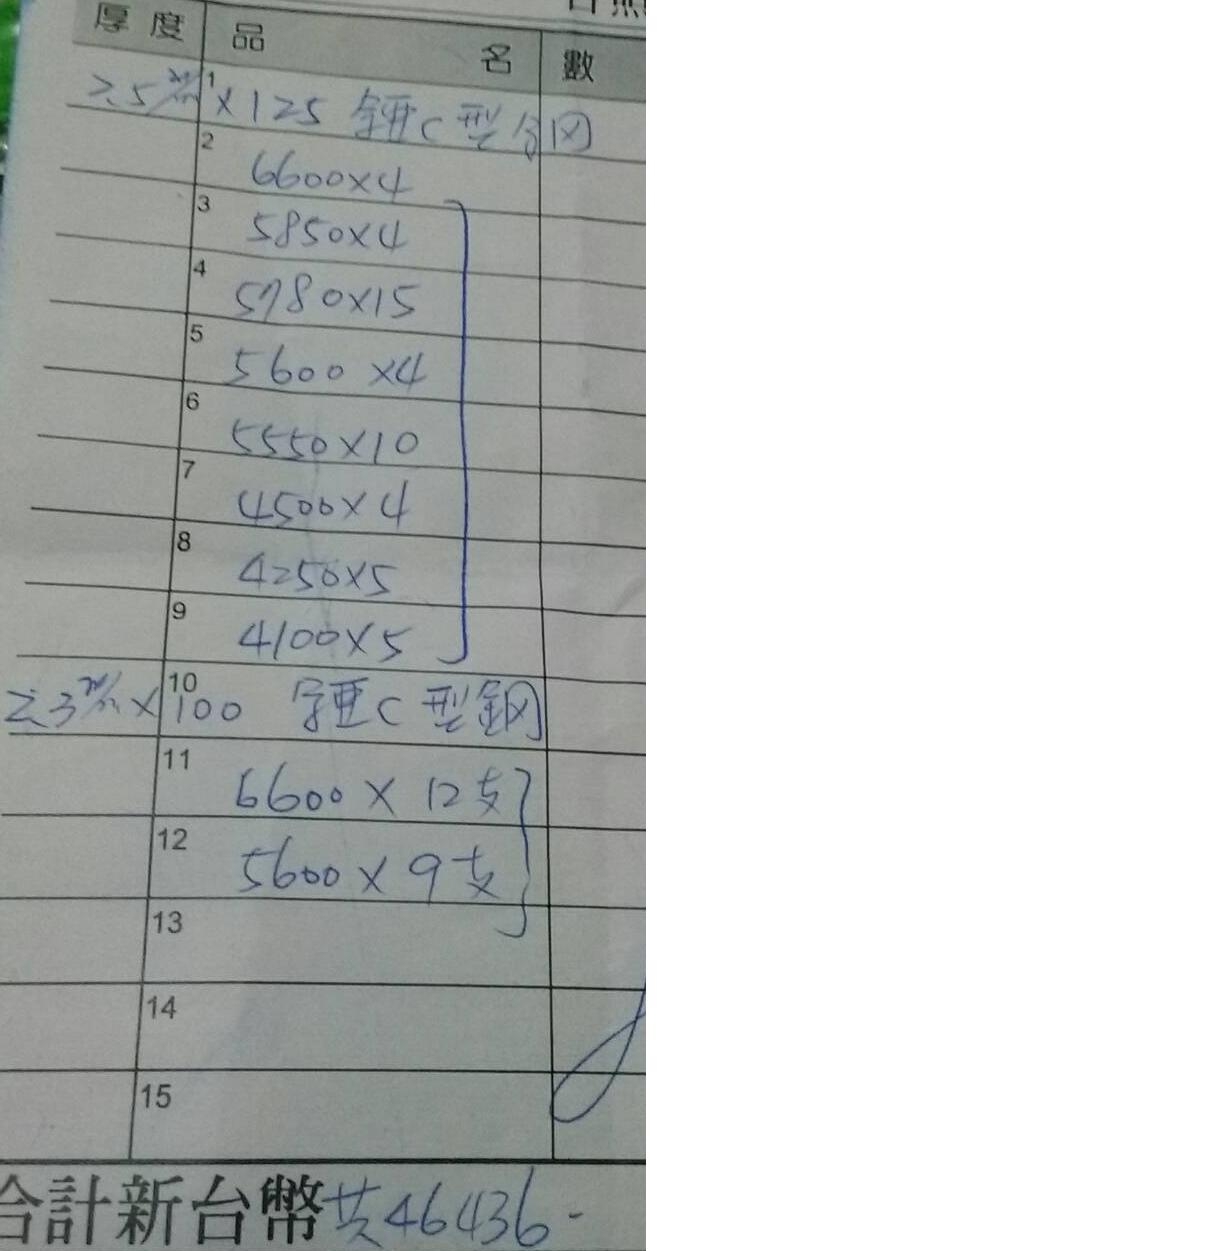 厚度 品名 數
2.5m/m 1 ×125 錏C型鋼
2 6600×4
3 5850×4
4 5780×15
5 5600×4
6 5550×10
7 4500×4
8 4250×5
9 4100×5
2.3m/m× 10 100 錏C型鋼
11 6600×12支
12 5600×9支
13
14
15
合計新台幣共46436-